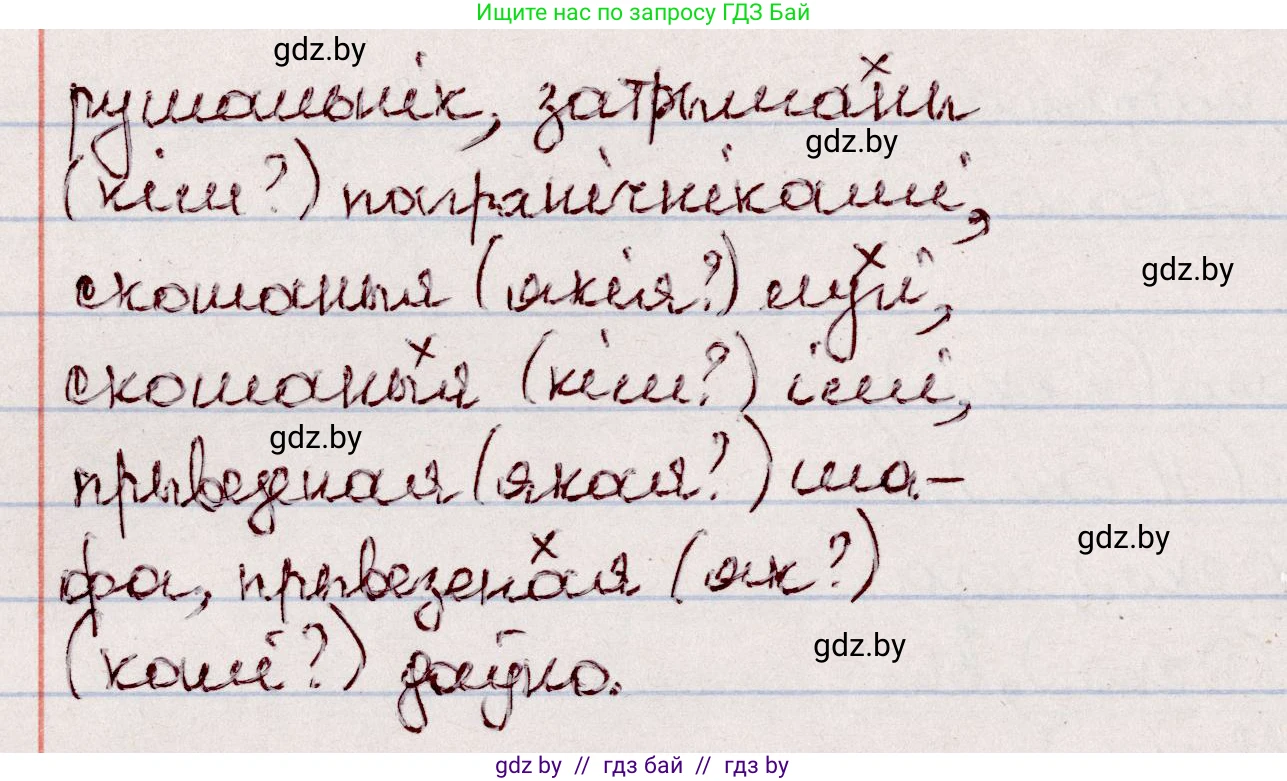 Ищите нас по запросу ГДЗ Бай
gdz.by
рушальнік, затрыманы
gdz.by
(кім?) пагранічнікамі,
скошаныя (якія?) лугі,
gdz.by
скошаныя (кім?) імі,
gdz.by
прывезеная (якая?) ша-
gdz.by
фа, прывезеная (як?)
(калі?) даўно.
gdz.by
gdz by // гдз бай // гдз by